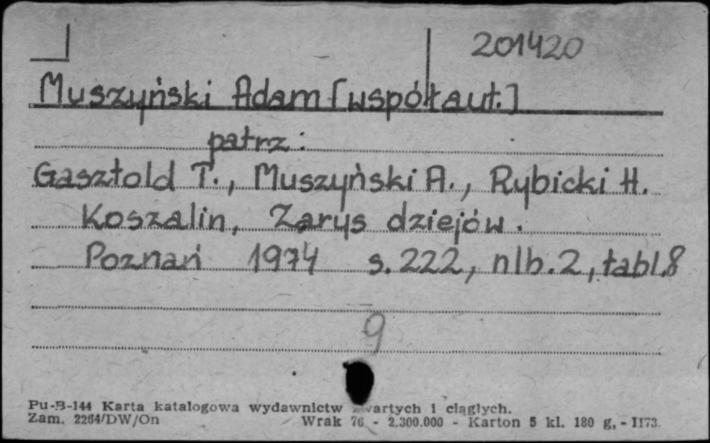 201420
Muszyński Adam [współaut.]
patrz:
Gasztold T., Muszyński A., Rybicki H.
Koszalin, Zarys dziejów.
Poznań 1974 s. 222, nlb. 2, tabl. 8
9
Pu-B-144 Karta katalogowa wydawnictw zwartych i ciągłych.
Zam. 2264/DW/On Wrak 76 - 2.300.000 - Karton 5 kl. 180 g, - II73.